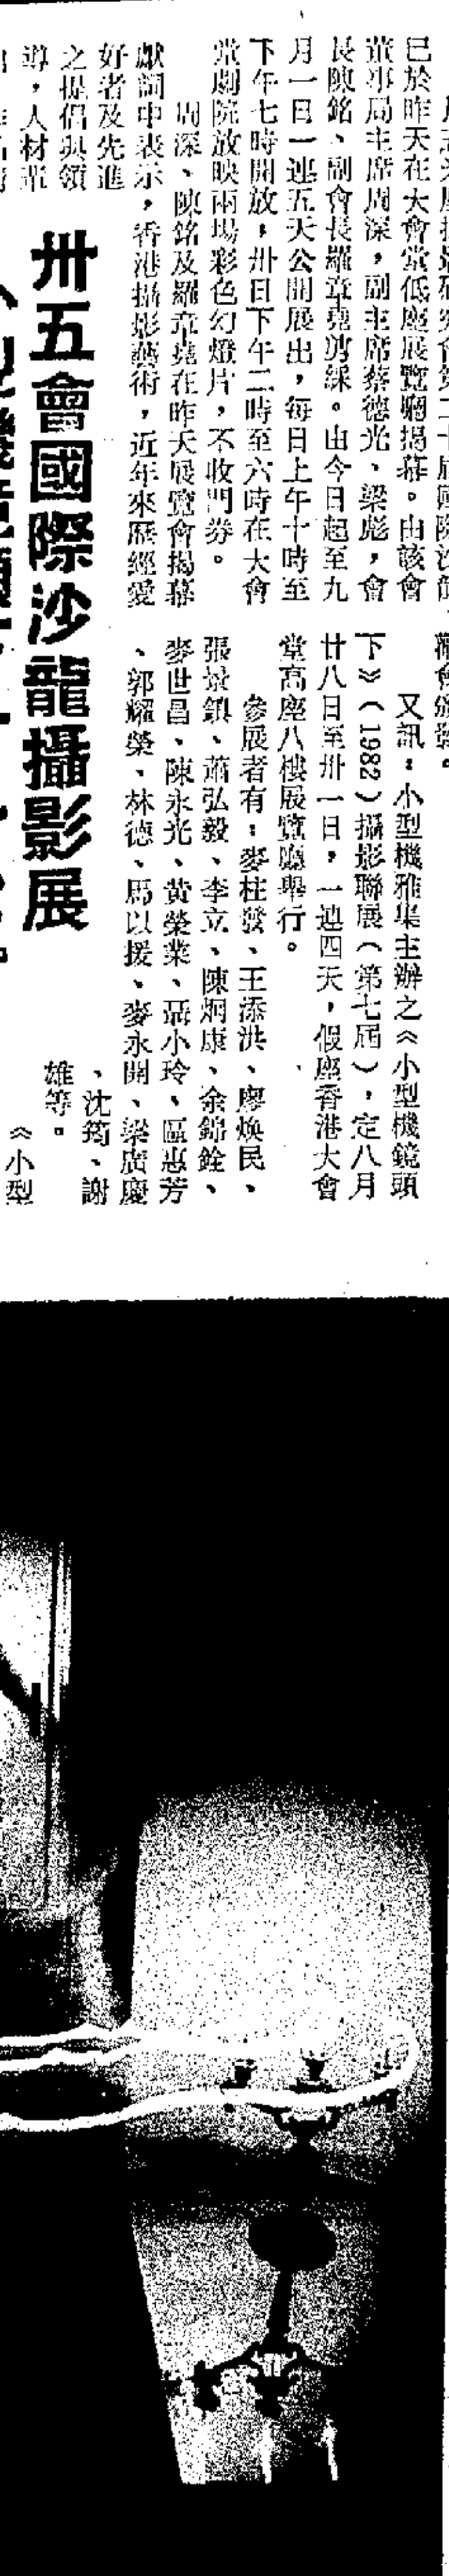 卅五會國際沙龍攝影展
已於昨天在大會堂低座展覽廳揭幕。由該會
董事局主席周深,副主席蔡德光、梁彪,會
長陳銘、副會長羅章堯剪綵。由今日起至九
月一日一連五天公開展出,每日上午十時至
下午七時開放,卅日下午二時至六時在大會
堂劇院放映兩場彩色幻燈片,不收門券。
周深、陳銘及羅章堯在昨天展覽會揭幕
獻詞中表示,香港攝影藝術,近年來歷經愛
好者及先進
之提倡與領
導,人材輩
又訊:小型機雅集主辦之《小型機鏡頭
下》(1982)攝影聯展(第七屆),定八月
廿八日至卅一日,一連四天,假座香港大會
堂高座八樓展覽廳舉行。
參展者有:麥柱發、王添洪、廖煥民、
張景鎖、蕭弘毅、李立、陳炯康、余錦銓、
麥世昌、陳永光、黃榮業、聶小玲、區惠芳
、郭耀榮、林德、馬以援、麥永開、梁廣慶
、沈筠、謝
雄等。
《小型